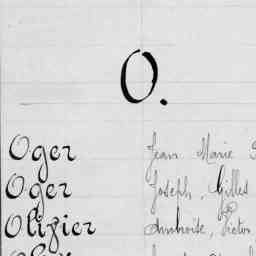 O.
Oger Jean Marie
Oger Joseph, Gilles
Olivier Ambroise, Victor